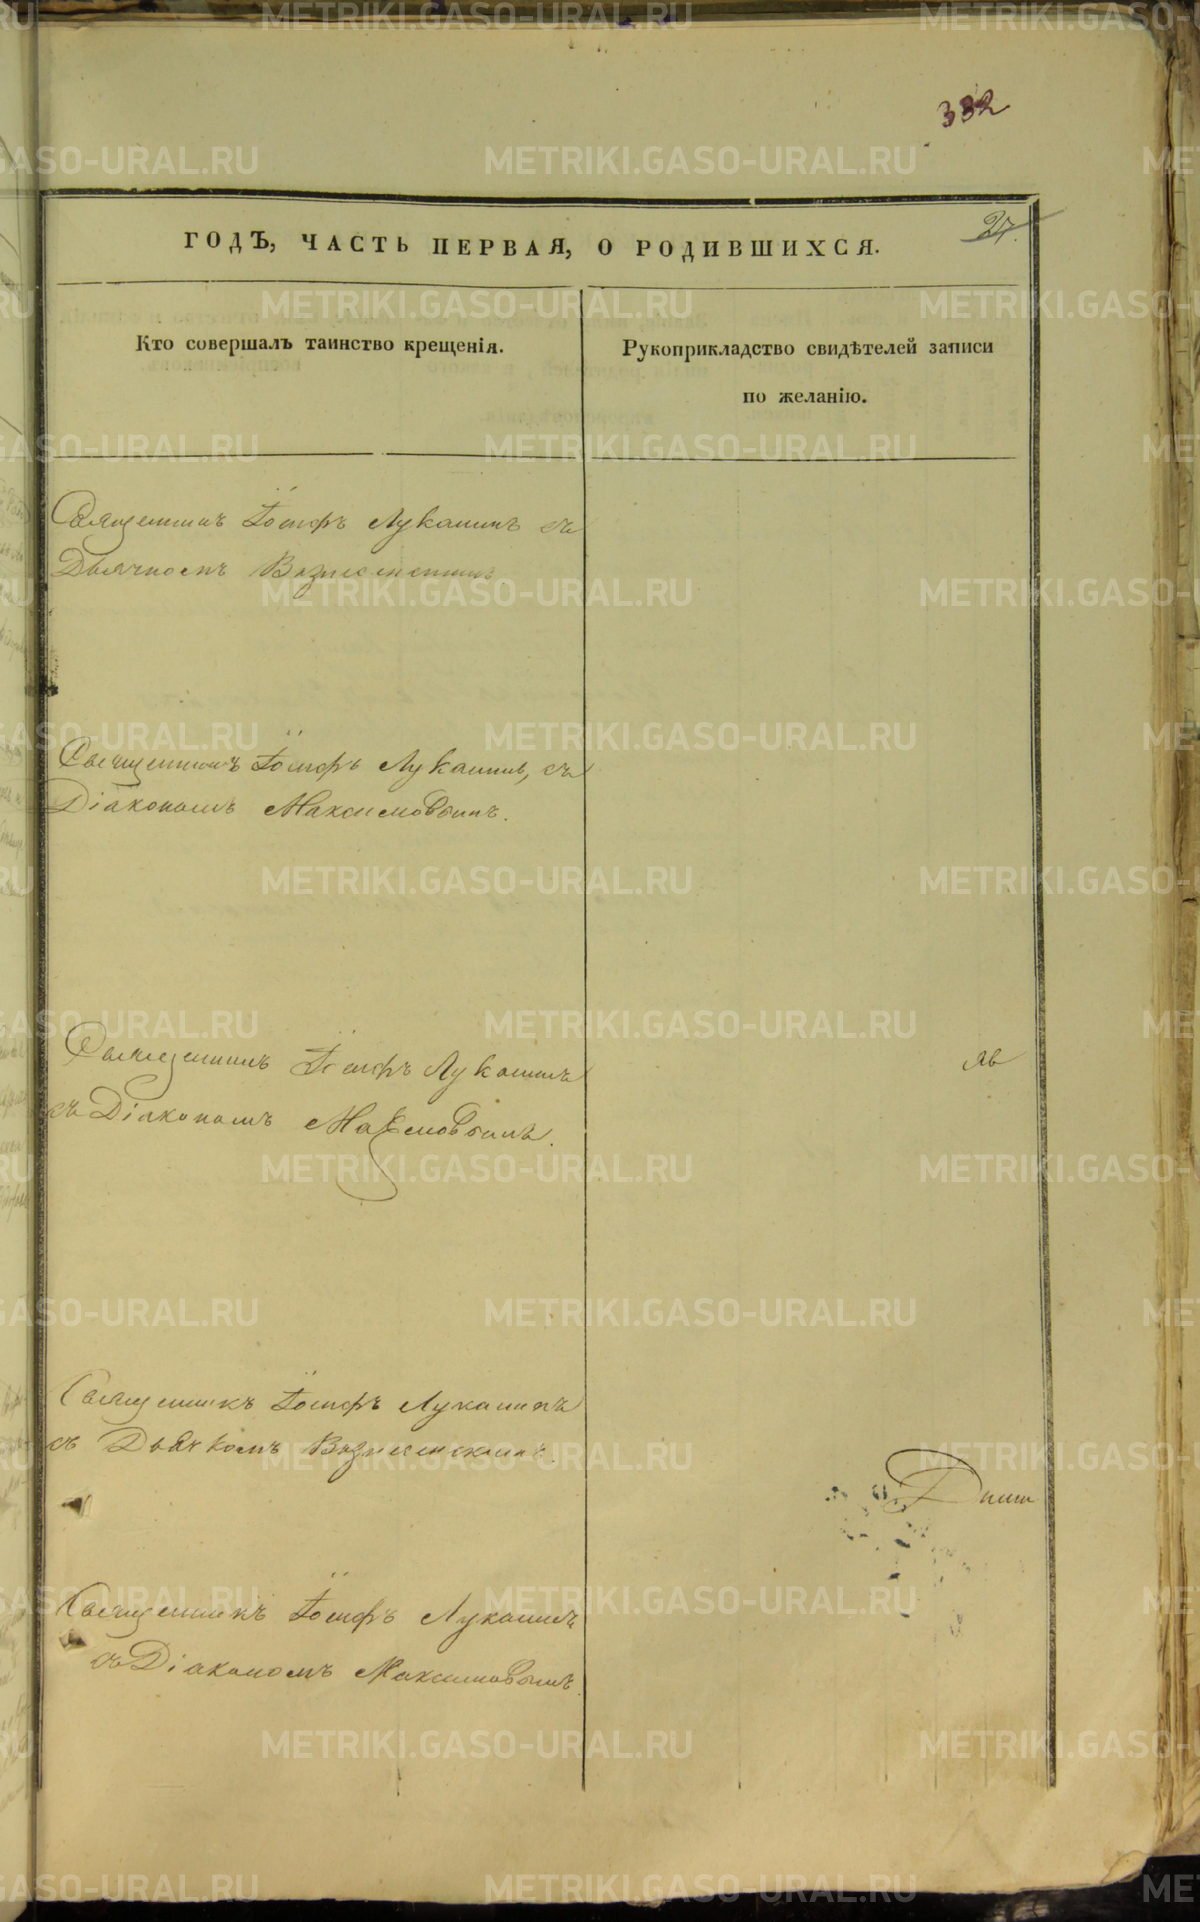 332
27.
ГОДЪ, ЧАСТЬ ПЕРВАЯ, О РОДИВШИХСЯ.
Кто совершалъ таинство крещенія.
Рукоприкладство свидѣтелей записи
по желанію.
Священникъ Іосифъ Луканинъ съ
Дьячкомъ Вознесенскимъ
Священникъ Іосифъ Луканинъ, съ
Діакономъ Максимовымъ.
Священникъ Іосифъ Луканинъ
съ Діакономъ Максимовымъ.
Священникъ Іосифъ Луканинъ
съ Дьячкомъ Вознесенскимъ.
Священникъ Іосифъ Луканинъ
съ Діакономъ Максимовымъ.
METRIKI.GASO-URAL.RU